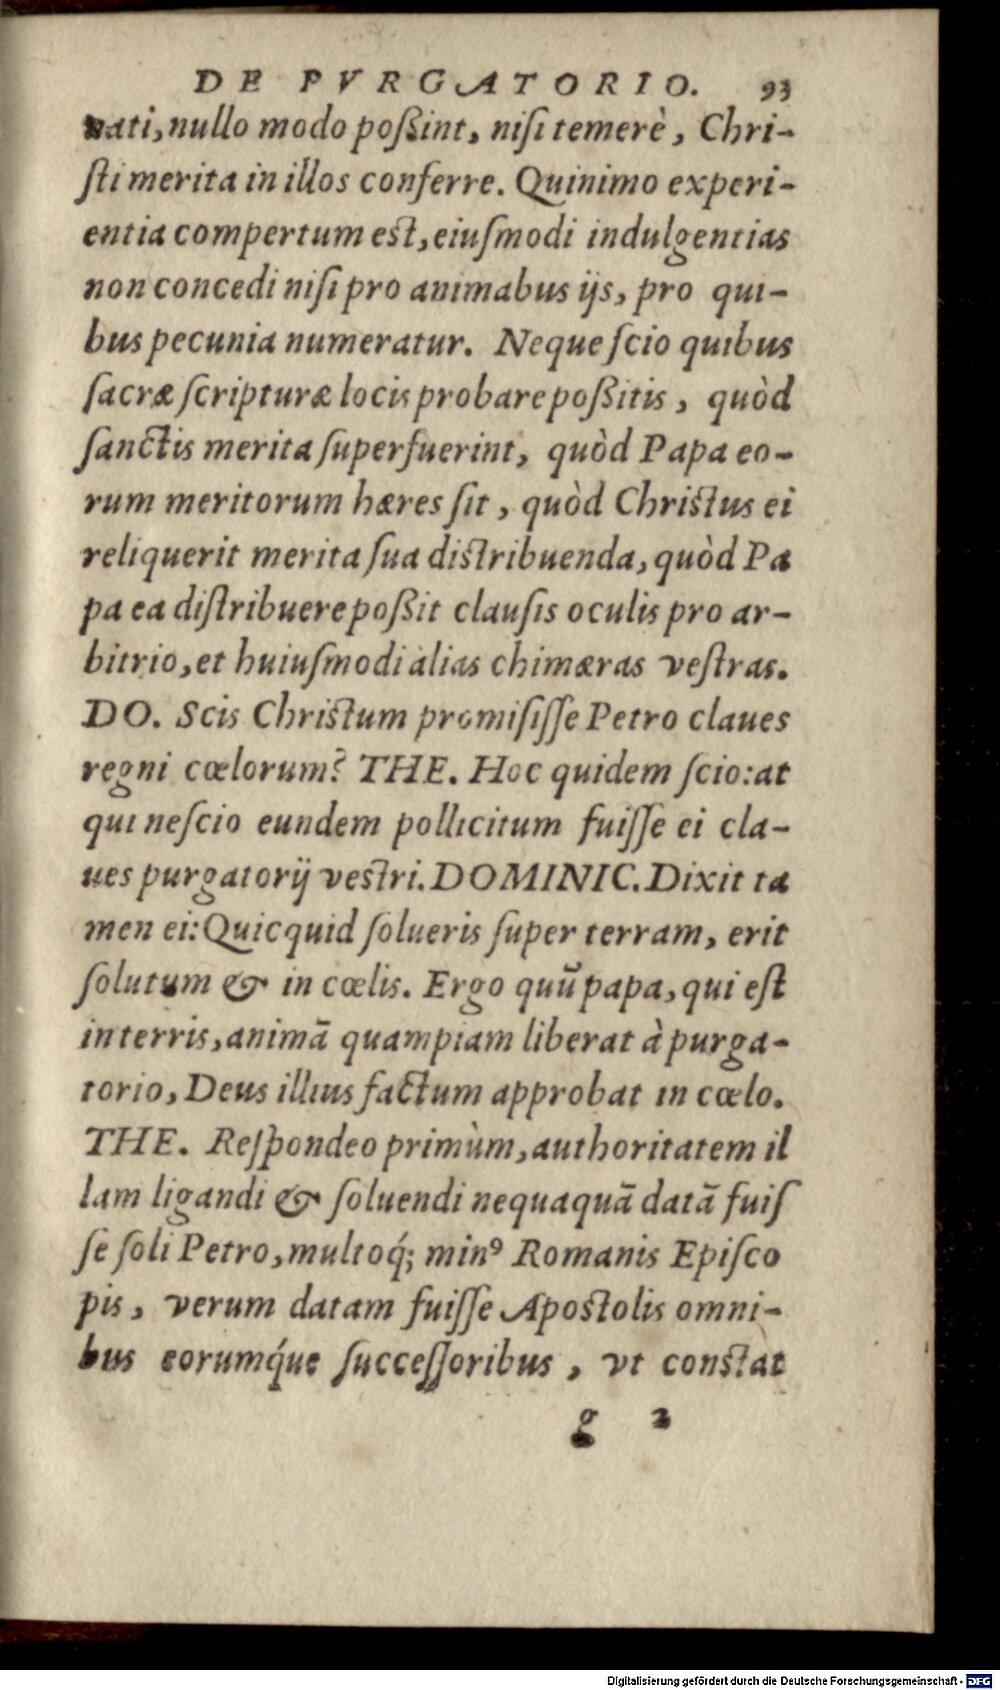 DE PVRGATORIO. 93
nati, nullo modo poßint, niſi temerè, Chri-
ſti merita in illos conferre. Quinimo experi-
entia compertum est, eiuſmodi indulgentias
non concedi niſi pro animabus ijs, pro qui-
bus pecunia numeratur. Neque ſcio quibus
ſacræ ſcripturæ locis probare poßitis, quòd
ſanctis merita ſuperfuerint, quòd Papa eo-
rum meritorum hæres ſit, quòd Christus ei
reliquerit merita ſua distribuenda, quòd Pa
pa ea diſtribuere poßit clauſis oculis pro ar-
bitrio, et huiuſmodi alias chimæras veſtras.
DO. Scis Christum promiſiſſe Petro claues
regni cœlorum? THE. Hoc quidem ſcio: at
qui neſcio eundem pollicitum fuiſſe ei cla-
ues purgatorij vestri. DOMINIC. Dixit ta
men ei: Quicquid ſolueris ſuper terram, erit
ſolutum & in cœlis. Ergo quũ papa, qui eſt
in terris, animã quampiam liberat à purga-
torio, Deus illius factum approbat in cœlo.
THE. Reſpondeo primùm, authoritatem il
lam ligandi & ſoluendi nequaquã datã fuiſ
ſe ſoli Petro, multoq́; minꝰ Romanis Epiſco
pis, verum datam fuiſſe Apostolis omni-
bus eorumq́ue ſucceſſoribus, vt constat
g 2
Digitalisierung gefördert durch die Deutsche Forschungsgemeinschaft - DFG